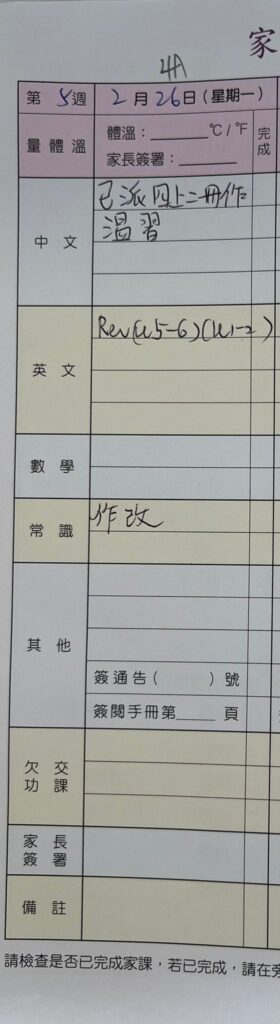 家
4A
第 5 週 2 月 26 日 (星期一)
量體溫 體溫：______°C / °F 完成
家長簽署：______
中文 已派四上二冊作
溫習
英文 Rev(U5-6)(U1-2)
數學
常識 作改
其他
簽通告( )號
簽閱手冊第____頁
欠交功課
家長簽署
備註
請檢查是否已完成家課，若已完成，請在旁